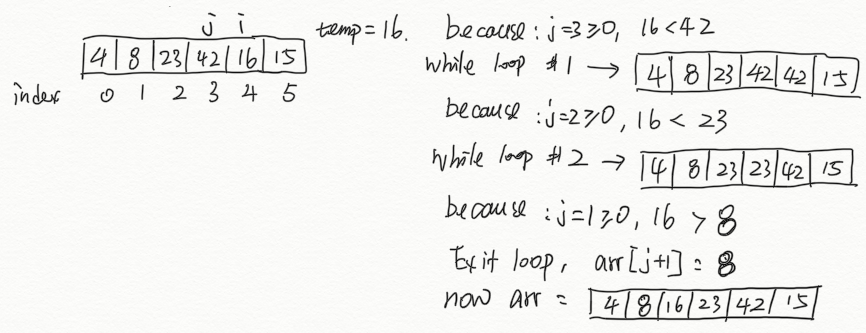 j i
4 8 23 42 16 15
index 0 1 2 3 4 5
temp = 16.
because : j=3≥0, 16<42
while loop #1 → 4 8 23 42 42 15
because : j=2≥0, 16 < 23
while loop #2 → 4 8 23 23 42 15
because : j=1≥0, 16 > 8
Exit loop, arr[j+1] = 8
now arr = 4 8 16 23 42 15